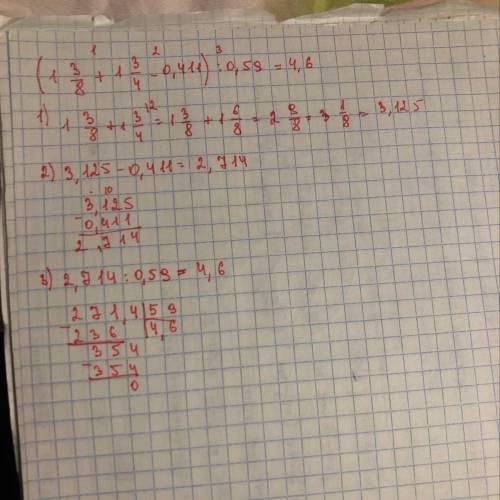 1 2 3
(1 3/8 + 1 3/4 - 0,411) : 0,59 = 4,6
1) 1 3/8 + 1 3/4 ^2 = 1 3/8 + 1 6/8 = 2 9/8 = 3 1/8 = 3,125
2) 3,125 - 0,411 = 2,714
. 10
- 3,125
0,411
2,714
3) 2,714 : 0,59 = 4,6
- 271,4 | 59
236 | 4,6
- 354
354
0